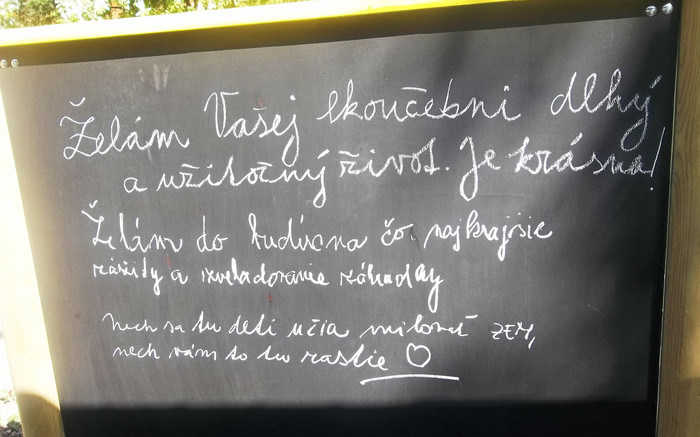 Želám Vašej ekoučebni dlhý
a užitočný život. Je krásna!
Želám do budúcna čo najkrajšie
zážitky a zveladovanie záhradky
Nech sa tu deti učia milovať ZEM,
nech vám to tu rastie ♡